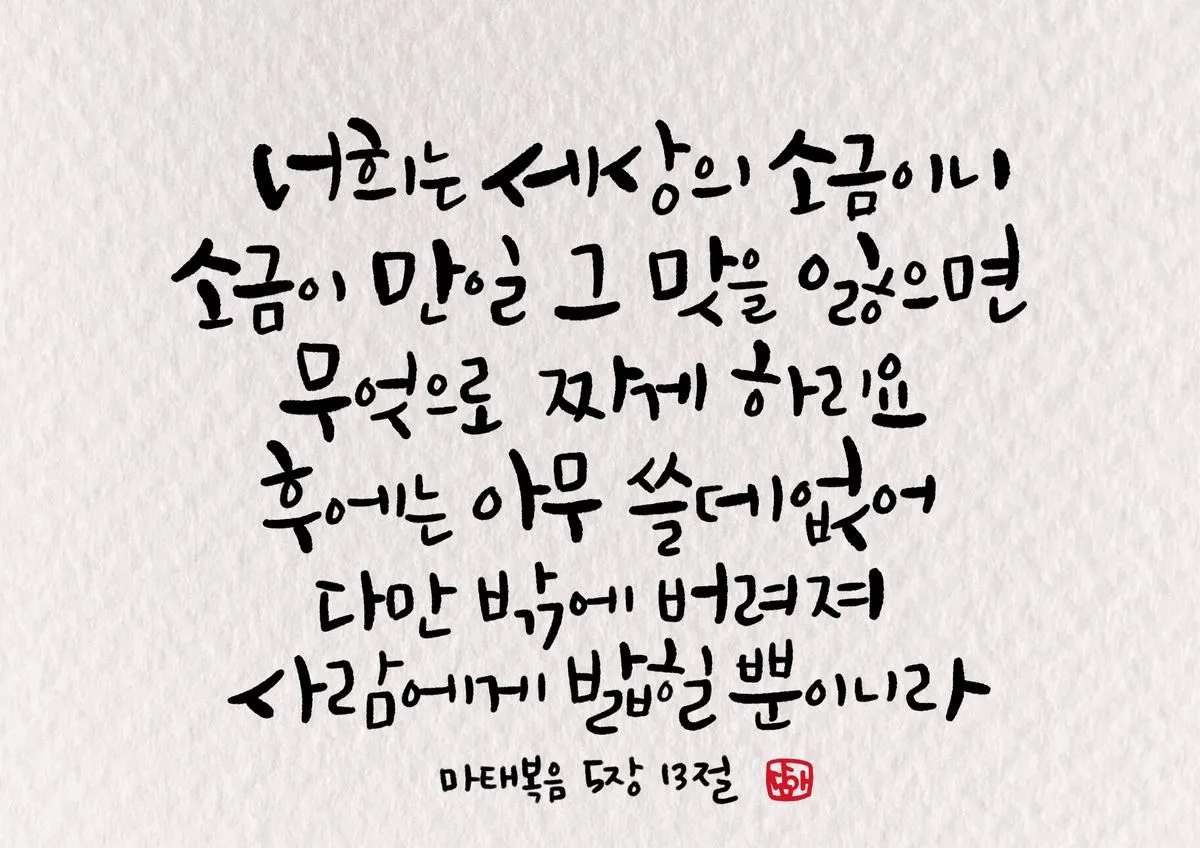 너희는 세상의 소금이니
소금이 만일 그 맛을 잃으면
무엇으로 짜게 하리요
후에는 아무 쓸데없어
다만 밖에 버려져
사람에게 밟힐 뿐이니라
마태복음 5장 13절